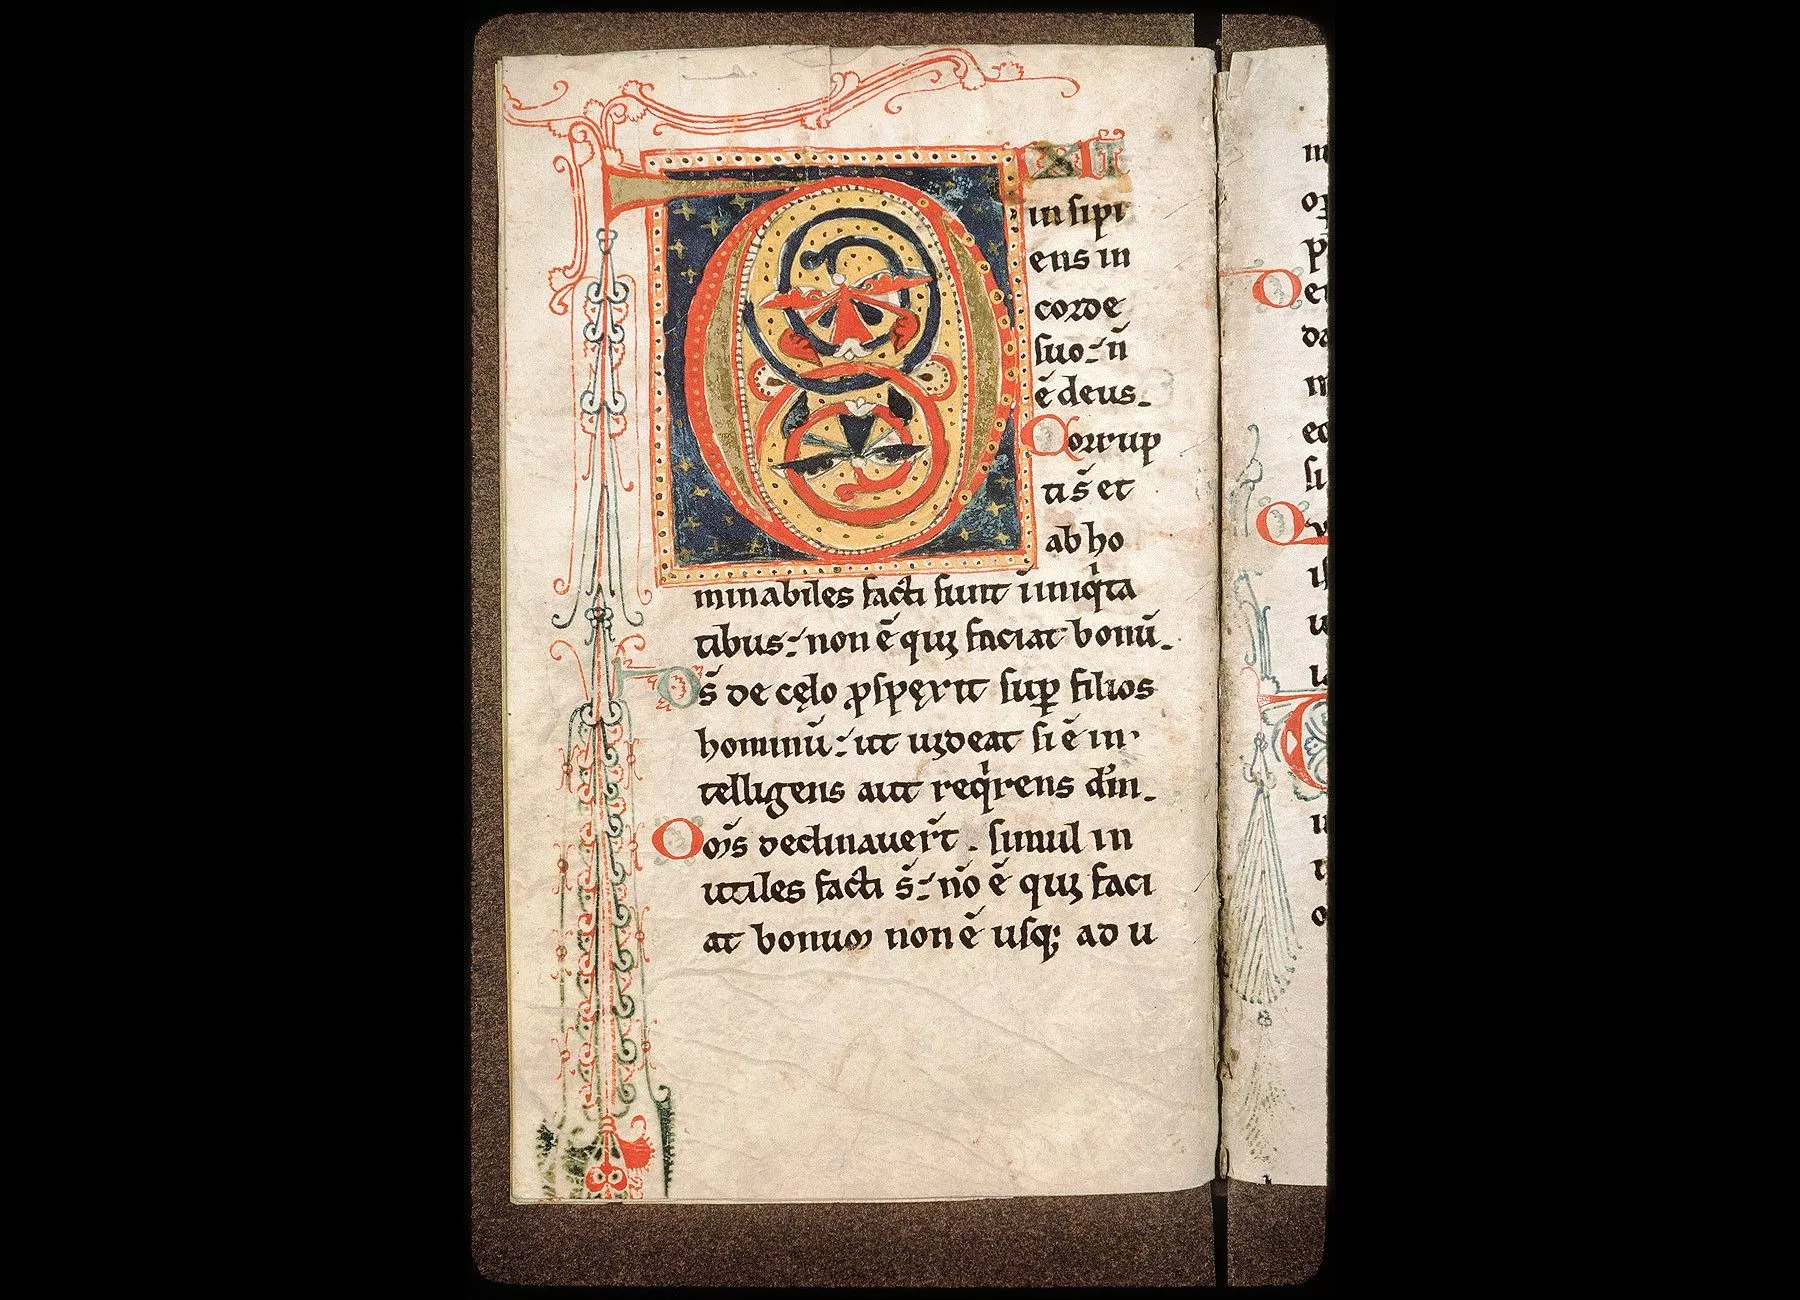 DIXIT
insipi
ens in
corde
suo: n̄
ē deus.
Corrup
ti s̄ et
abho
minabiles facti sunt ī iniqͥta
tibus: non ē qui faciat bonū.
Ds̄ de cęlo ꝓspęxit suꝑ filios
hominū: ut uideat si ē in
telligens aut reqͥrens dm̄.
Oms̄ declinauer̄t. simul in
utiles facti s̄: nō ē qui faci
at bonum non ē usqꝫ ad u